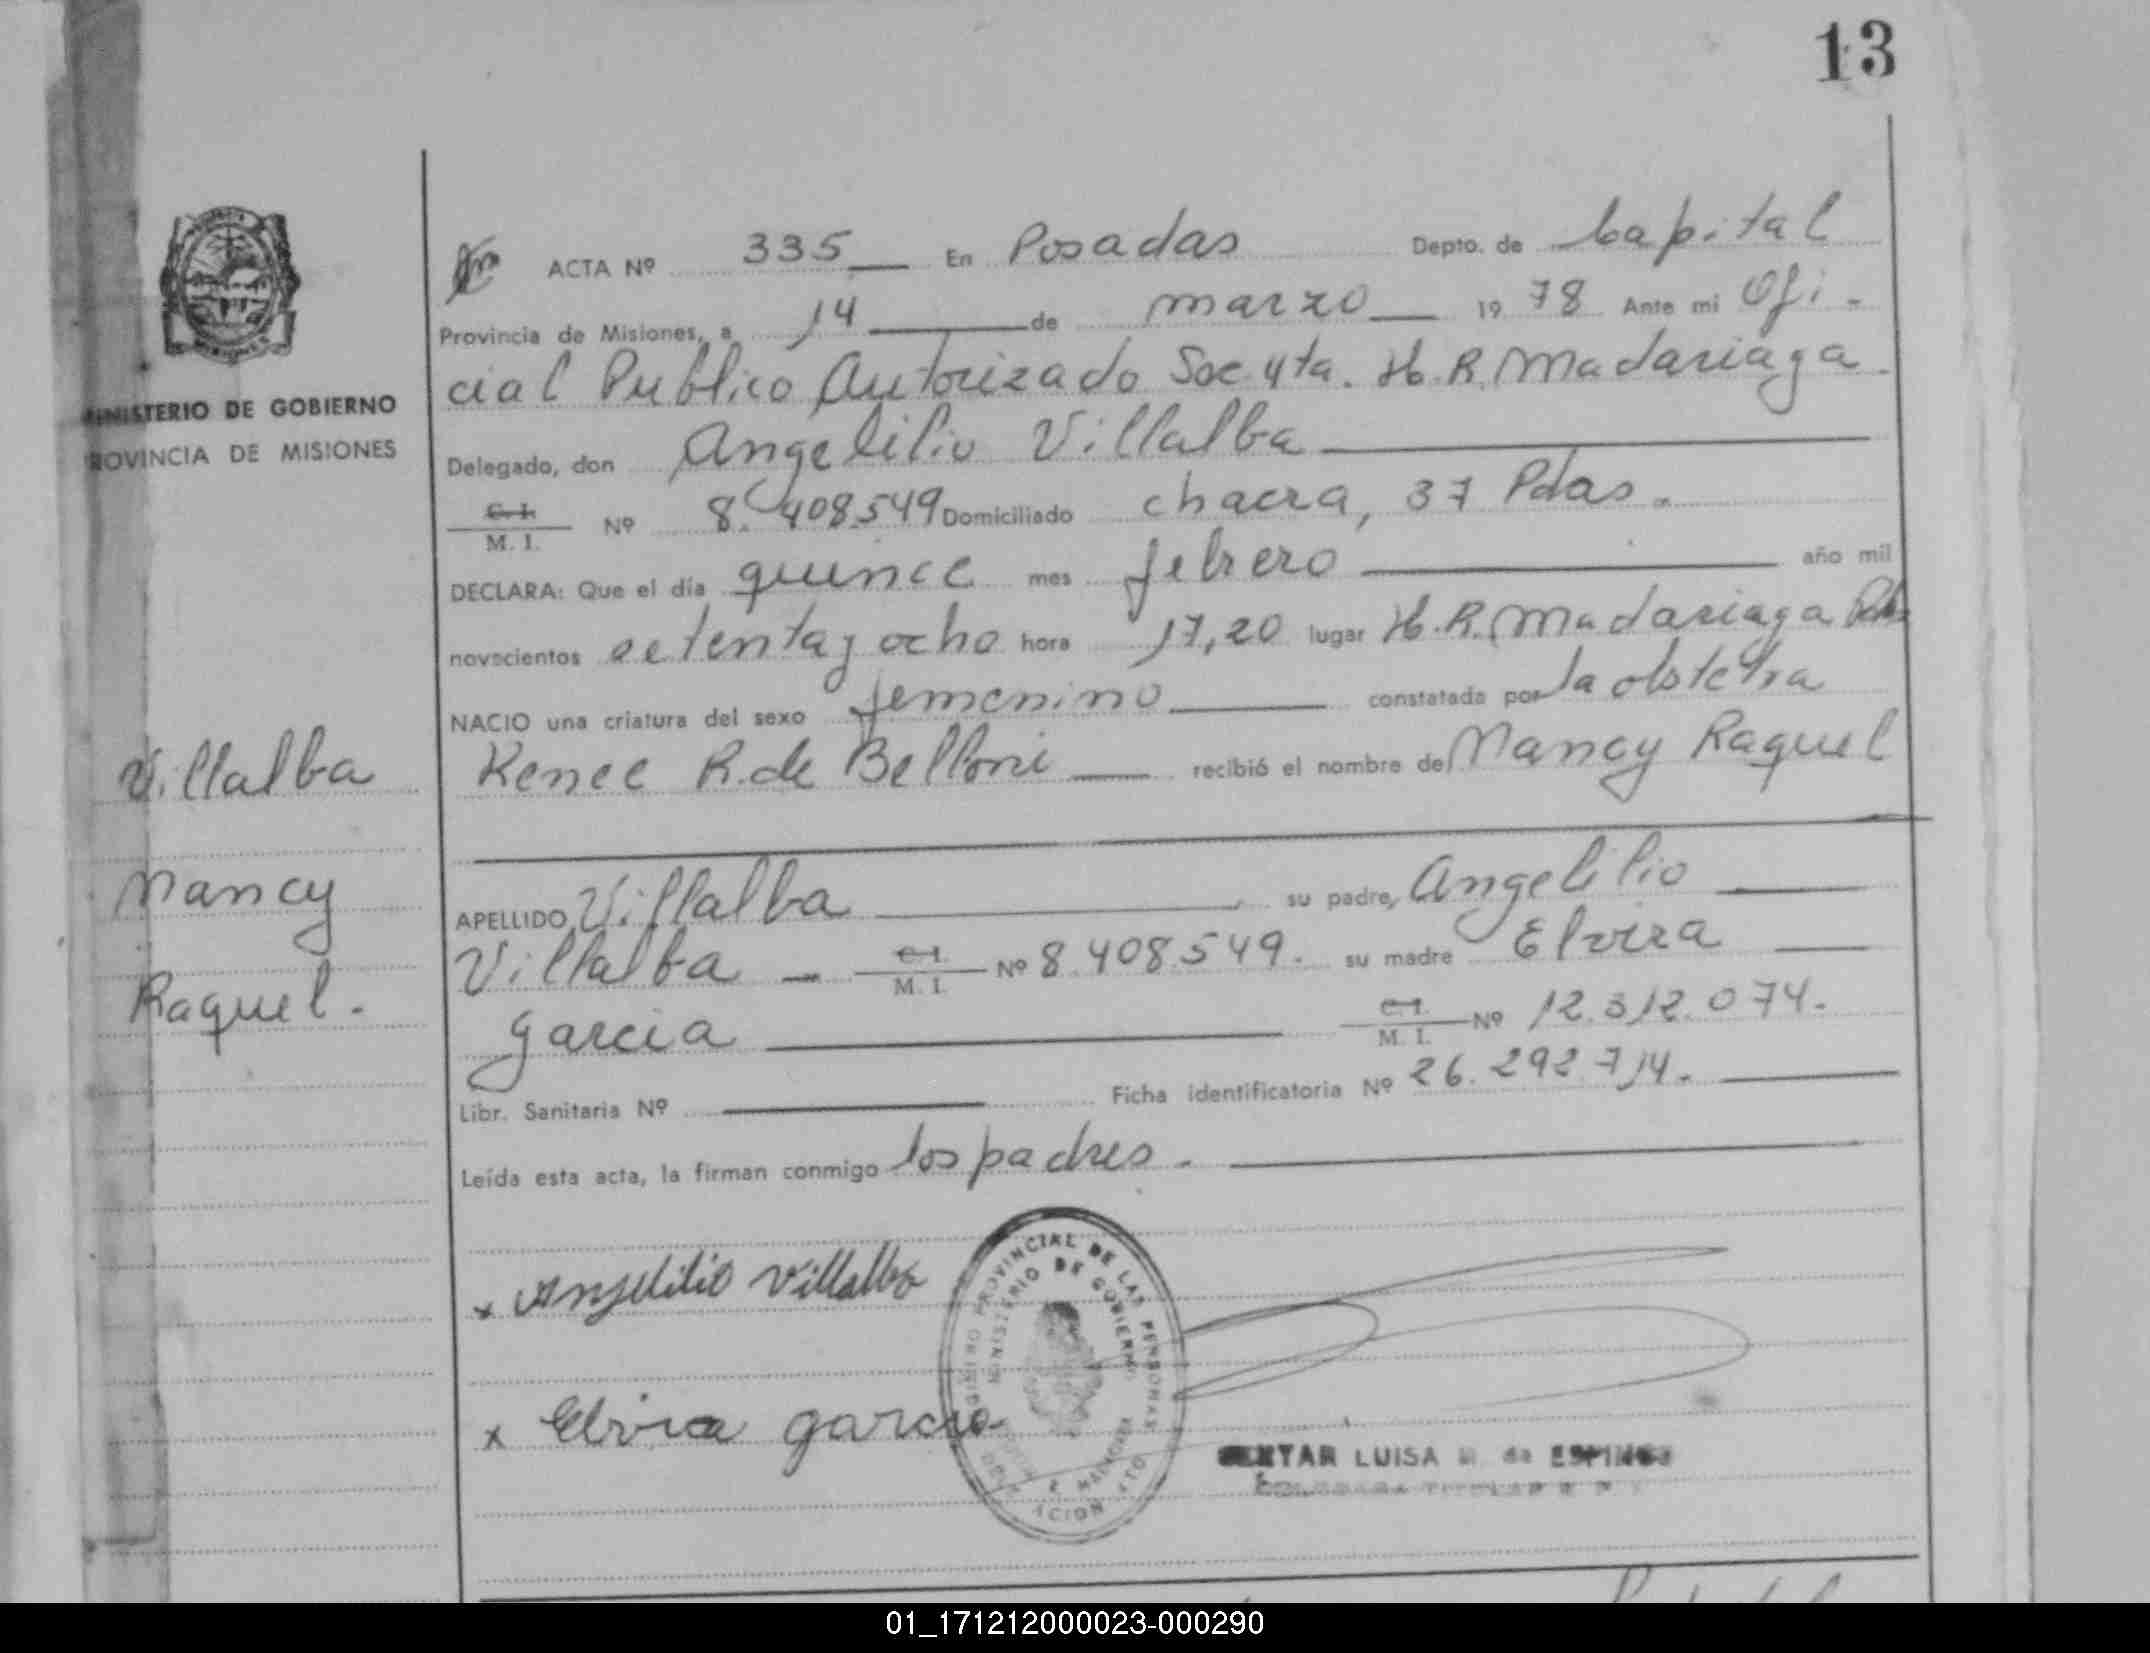 13
ACTA Nº 335 En Posadas Depto. de Capital
Provincia de Misiones, a 14 de marzo 1978 Ante mi Ofi-
cial Publico Autorizado Sec. 4ta. H.R. Madariaga
Delegado, don Angelilio Villalba
C. I. M. I. Nº 8.408.549 Domiciliado chacra, 37 Pdas.
DECLARA: Que el día quince mes febrero año mil
novecientos setenta y ocho hora 17,20 lugar H.R. Madariaga Pdas
NACIO una criatura del sexo femenino constatada por la obstetra
Renee R. de Belloni recibió el nombre de Nancy Raquel
APELLIDO Villalba su padre, Angelilio
Villalba - C. I. M. I. Nº 8.408.549. su madre Elvira
Garcia C. I. M. I. Nº 12.312.074.
Libr. Sanitaria Nº Ficha identificatoria Nº 26.292.714.
Leída esta acta, la firman conmigo los padres.
x Angelilio Villalba
x Elvira garcia
REGISTRO PROVINCIAL DE LAS PERSONAS
MINISTERIO DE GOBIERNO
LUISA de ESPINOSA
MINISTERIO DE GOBIERNO
PROVINCIA DE MISIONES
Villalba
Nancy
Raquel.
01_171212000023-000290